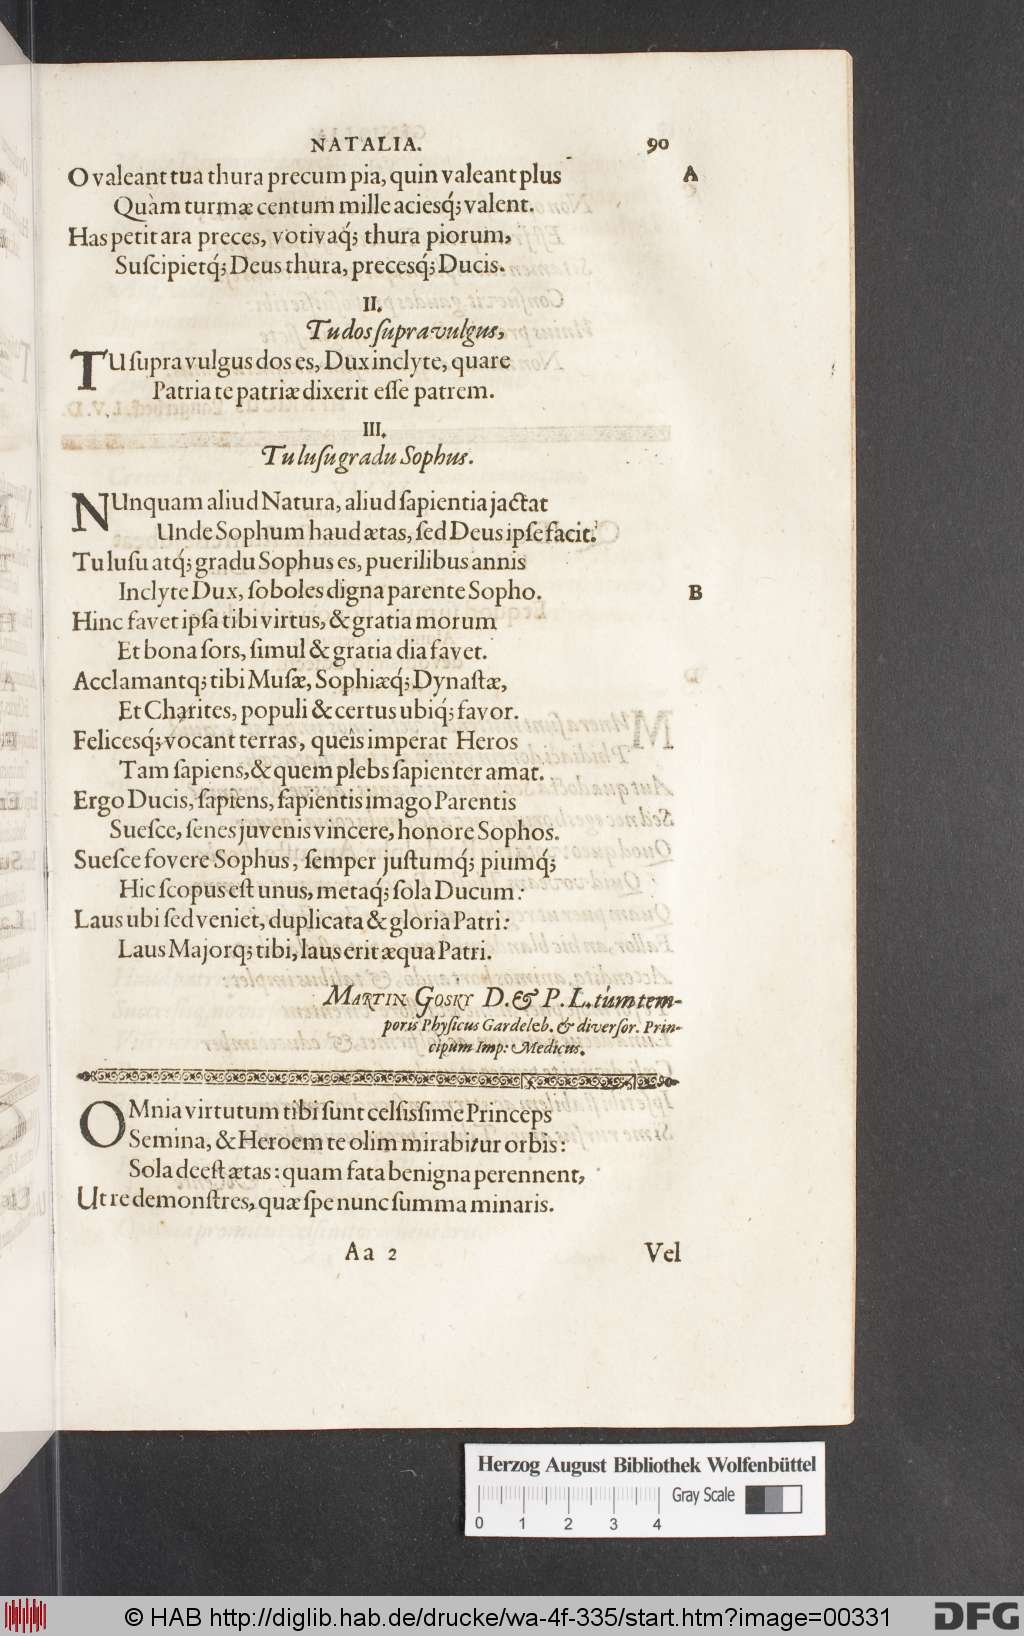 NATALIA. 90
O valeant tua thura precum pia, quin valeant plus A
Quàm turmæ centum mille aciesq́; valent.
Has petit ara preces, votivaq́; thura piorum,
Suſcipietq́; Deus thura, precesq́; Ducis.
II.
Tu dos ſupra vulgus,
TU ſupra vulgus dos es, Dux inclyte, quare
Patria te patriæ dixerit eſſe patrem.
III.
Tu luſu gradu Sophus.
NUnquam aliud Natura, aliud ſapientia jactat
Unde Sophum haud ætas, ſed Deus ipſe facit.
Tu luſu atq́; gradu Sophus es, puerilibus annis
Inclyte Dux, ſoboles digna parente Sopho. B
Hinc favet ipſa tibi virtus, & gratia morum
Et bona ſors, ſimul & gratia dia favet.
Acclamantq; tibi Muſæ, Sophiæq́; Dynaſtæ,
Et Charites, populi & certus ubiq́; favor.
Felicesq́; vocant terras, queîs imperat Heros
Tam ſapiens, & quem plebs ſapienter amat.
Ergo Ducis, ſapiens, ſapientis imago Parentis
Sueſce, ſenes juvenis vincere, honore Sophos.
Sueſce fovere Sophus, ſemper juſtumq́; piumq́;
Hic ſcopus eſt unus, metaq́; ſola Ducum:
Laus ubi ſed veniet, duplicata & gloria Patri:
Laus Majorq; tibi, laus erit æqua Patri.
MARTIN GOSKY D. & P. L. tùm tem-
poris Phyſicus Gardeleb. & diverſor. Prin-
cipum Imp: Medicus.
OMnia virtutum tibi ſunt celſiſſime Princeps
Semina, & Heroem te olim mirabitur orbis:
Sola deeſt ætas: quam fata benigna perennent,
Ut re demonſtres, quæ ſpe nunc ſumma minaris.
Aa 2 Vel
Herzog August Bibliothek Wolfenbüttel
Gray Scale
0 1 2 3 4
© HAB http://diglib.hab.de/drucke/wa-4f-335/start.htm?image=00331
DFG